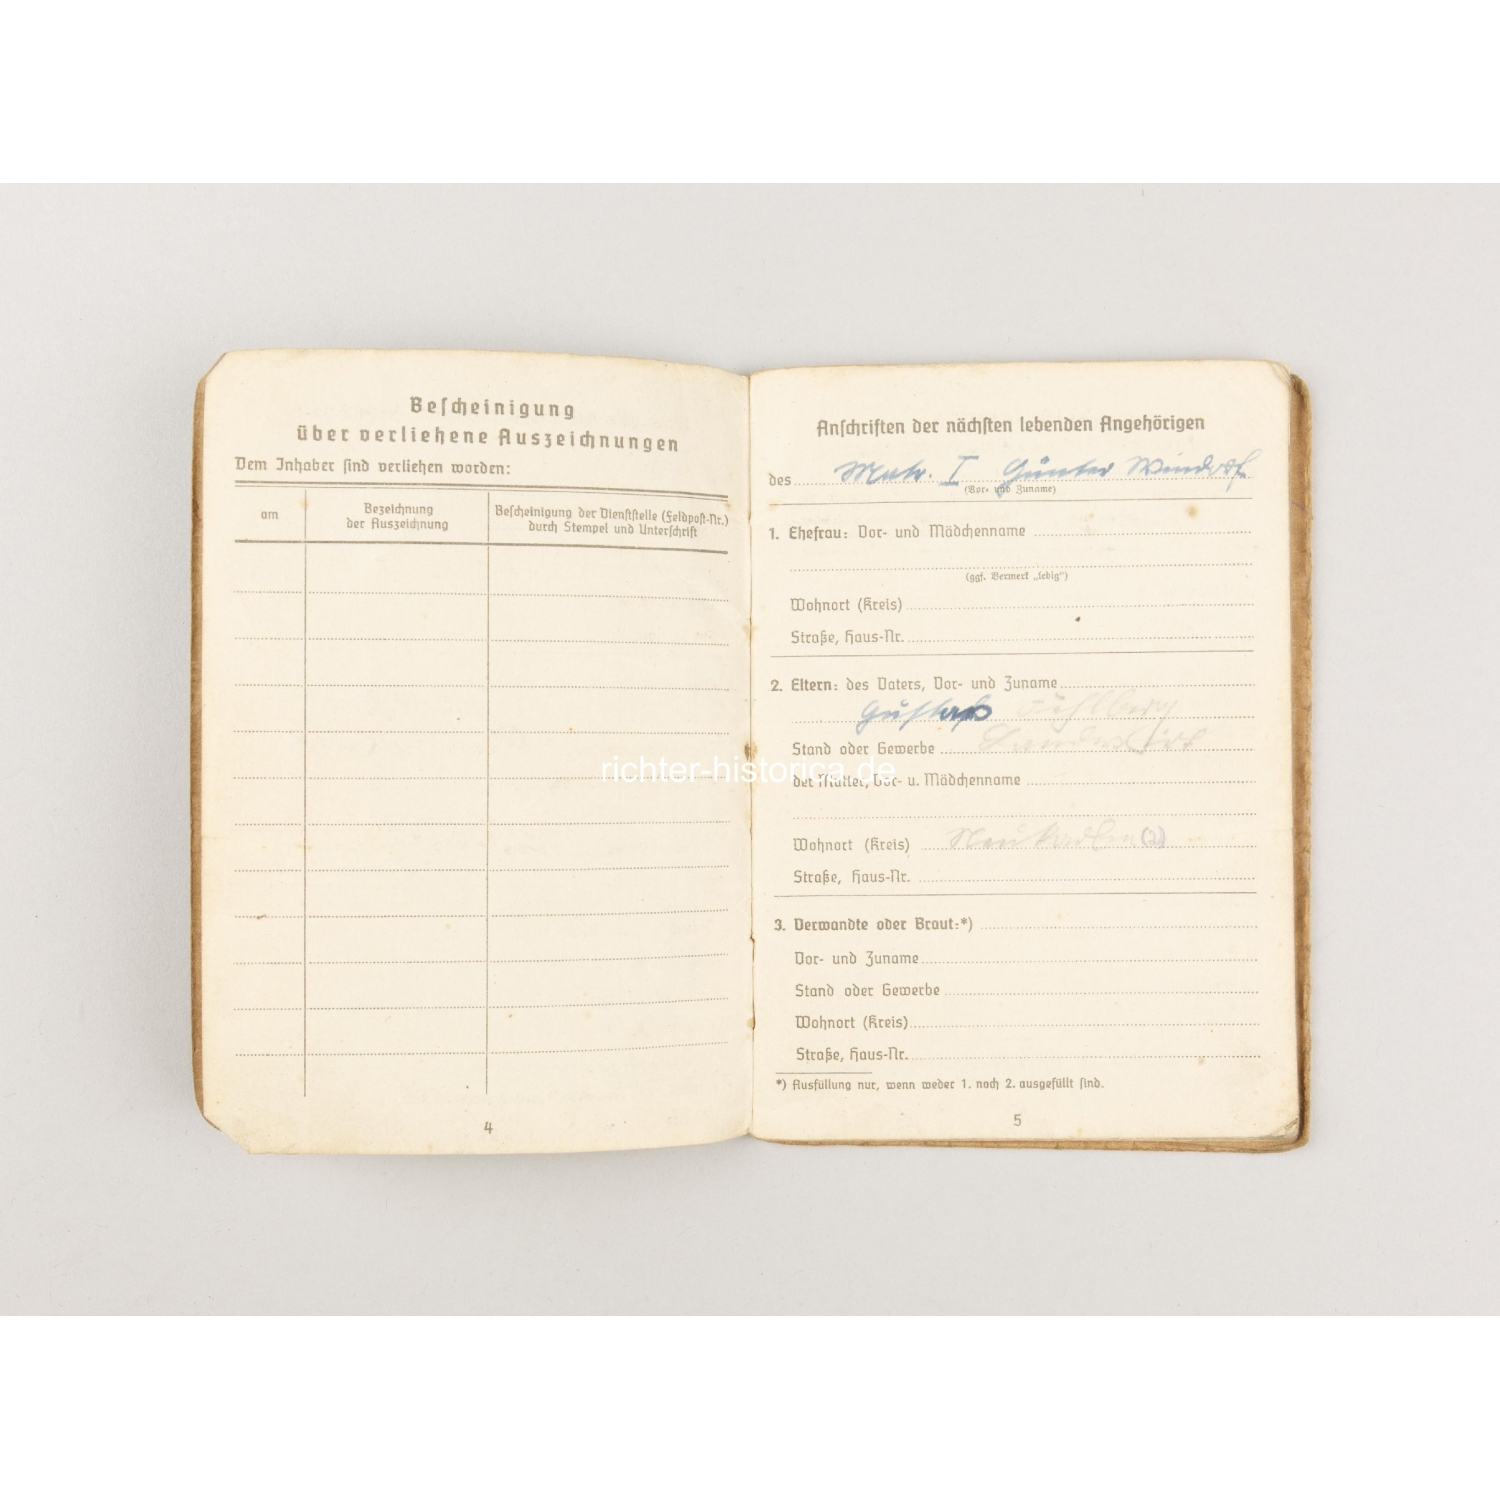 Bescheinigung
über verliehene Auszeichnungen
Dem Inhaber sind verliehen worden:
am
Bezeichnung
der Auszeichnung
Bescheinigung der Dienststelle (Feldpost-Nr.)
durch Stempel und Unterschrift
4
Anschriften der nächsten lebenden Angehörigen
des Matr. I Günter Windorf
(Vor- und Zuname)
1. Ehefrau: Vor- und Mädchenname
(ggf. Vermerk „ledig“)
Wohnort (Kreis)
Straße, Haus-Nr.
2. Eltern: des Vaters, Vor- und Zuname
Gustav
Stand oder Gewerbe
der Mutter, Vor- u. Mädchenname
Wohnort (Kreis)
Straße, Haus-Nr.
3. Verwandte oder Braut:*)
Vor- und Zuname
Stand oder Gewerbe
Wohnort (Kreis)
Straße, Haus-Nr.
*) Ausfüllung nur, wenn weder 1. noch 2. ausgefüllt sind.
5
richter-historica.de